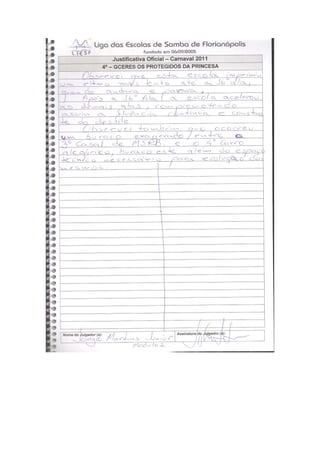 Liga das Escolas de Samba de Florianópolis
Fundada em 04/09/2005
Justificativa Oficial – Carnaval 2011
4ª – GCERES OS PROTEGIDOS DA PRINCESA
Observei que esta escola imprimiu
um ritmo mais lento até a 16 ala,
quando andava e parava.
Após a 16ª ala a escola acelerou
as demais alas, comprometendo
assim a fluência contínua e constan
te do desfile
Observei também que ocorreu
um buraco exagerado entre o
3º Casal de MSPB e o 4º Carro
alegórico, buraco este além do espaço
técnico necessário para evolução dos
mesmos.
Nome do Julgador (a):
Assinatura do Julgador (a):
Jorge Martins Junior
Módulo 1